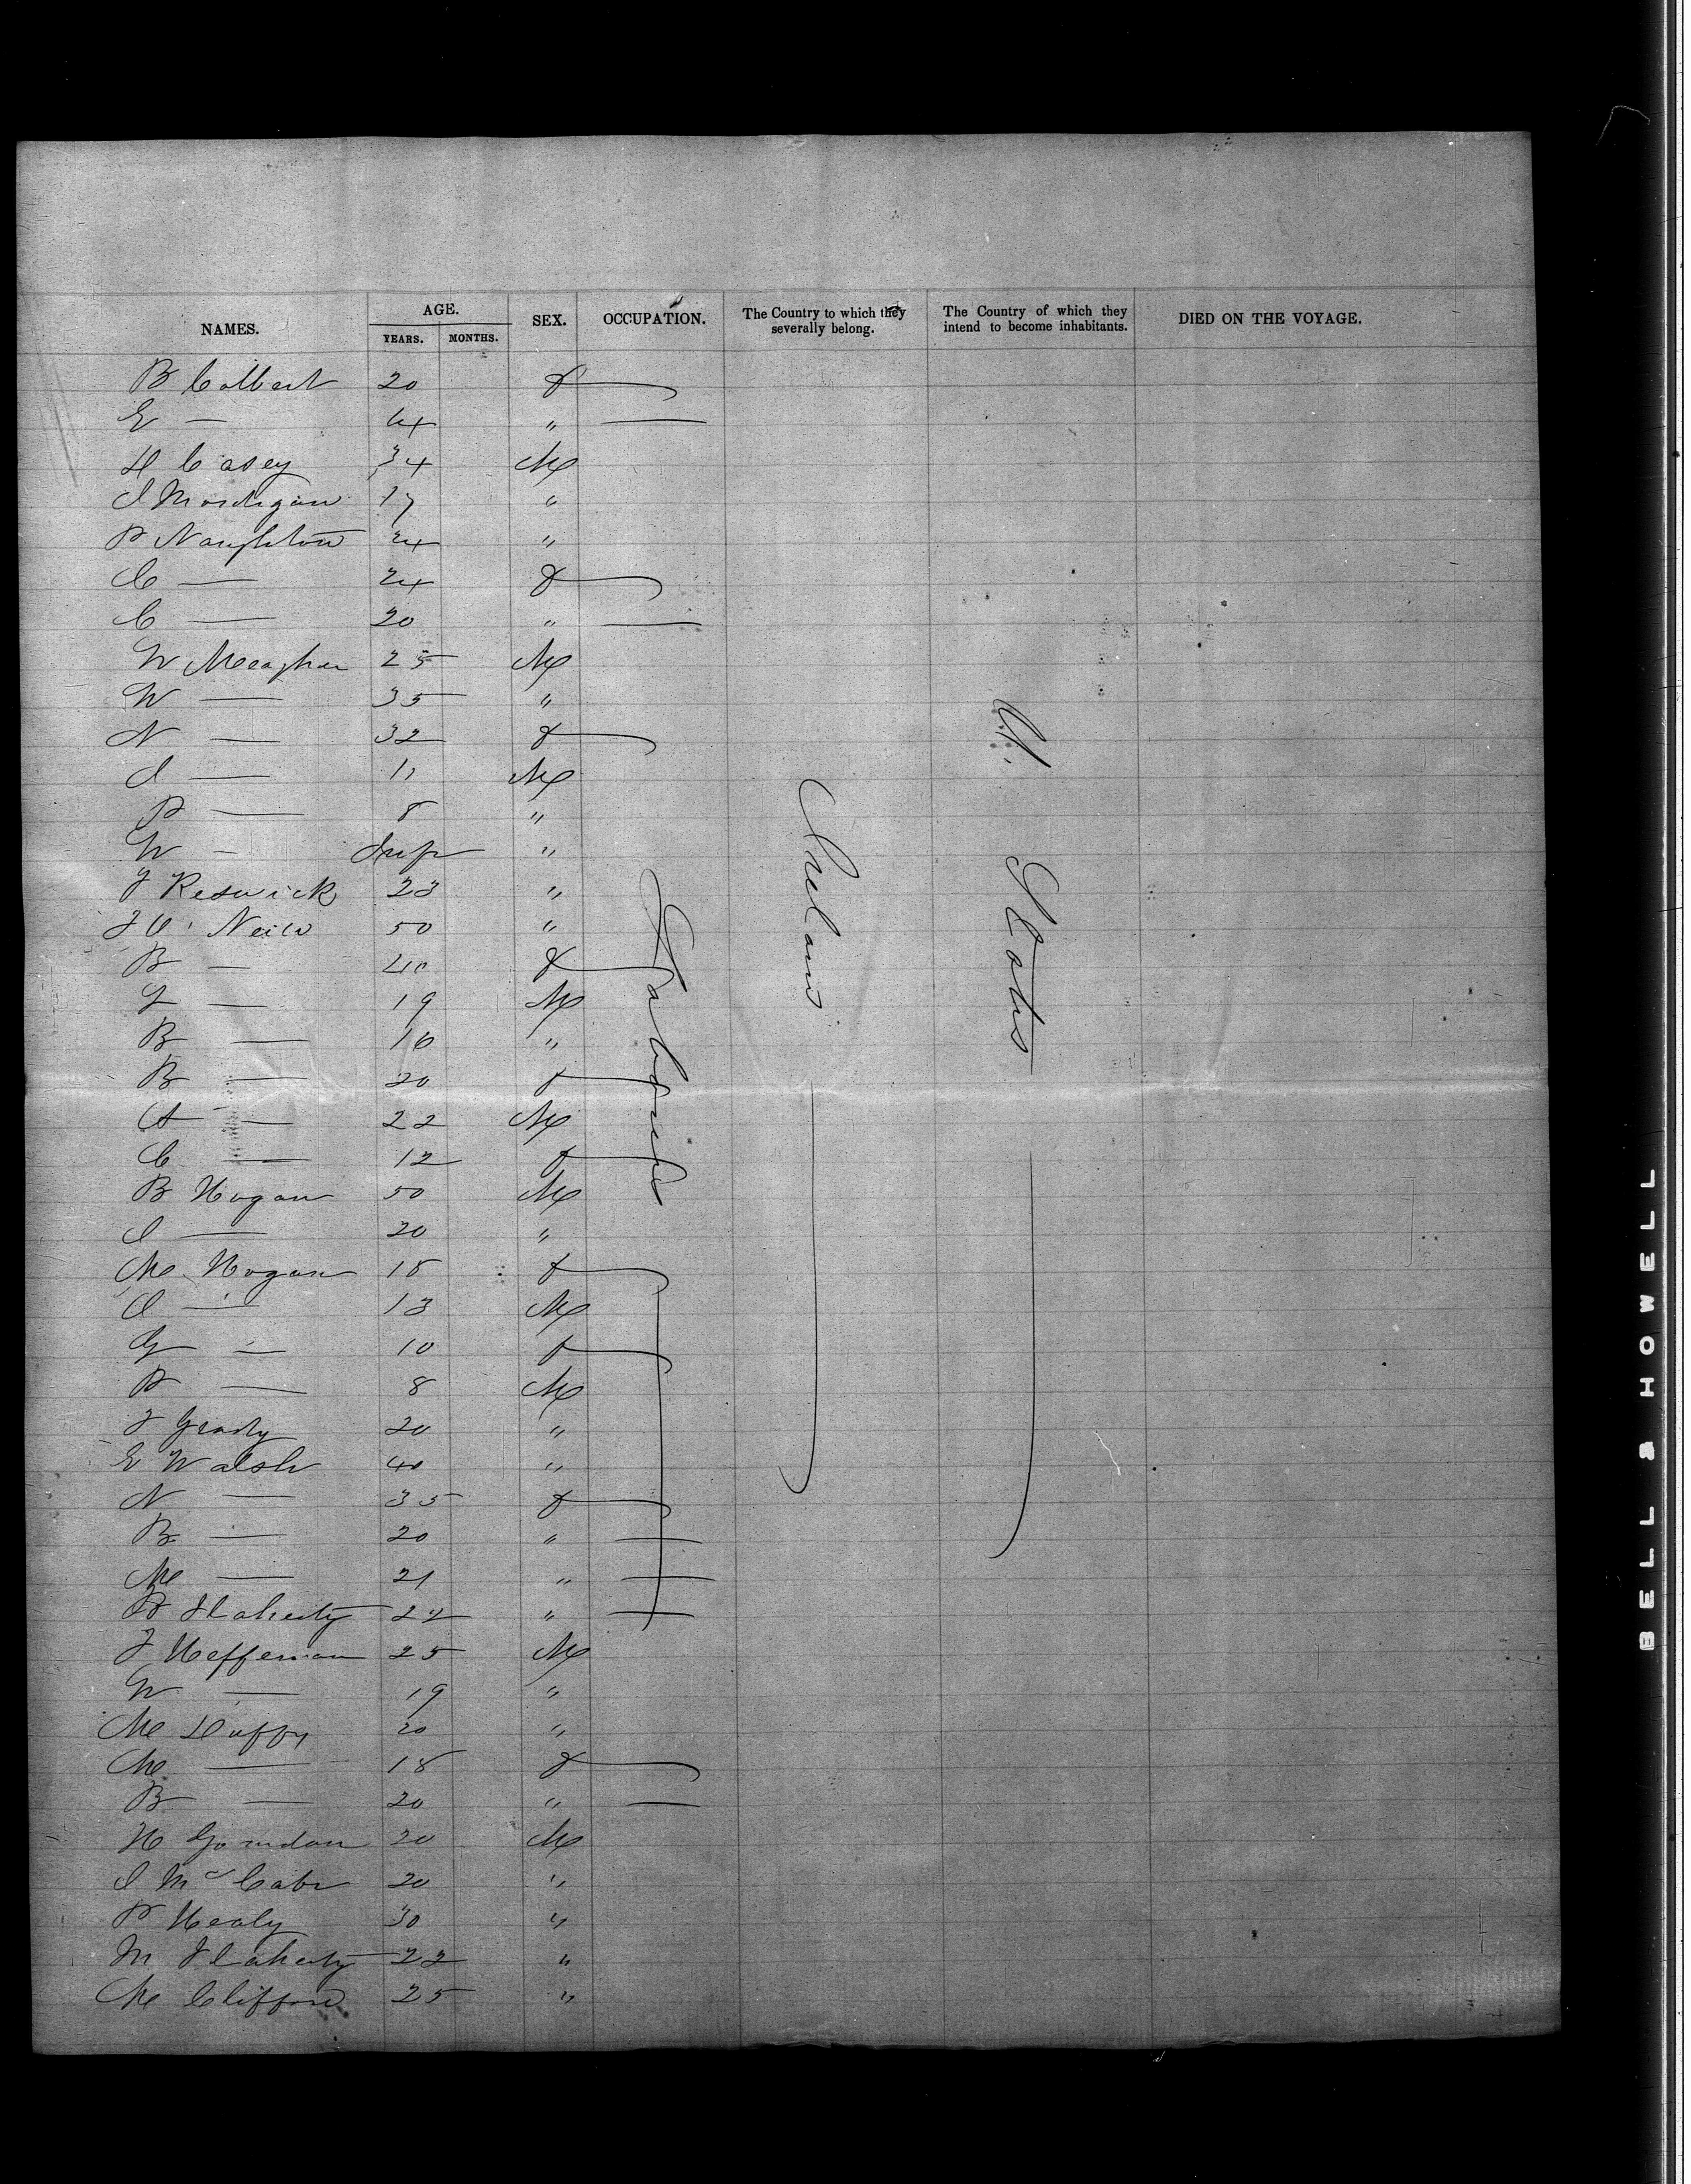 NAMES. AGE. SEX. OCCUPATION. The Country to which they severally belong. The Country of which they intend to become inhabitants. DIED ON THE VOYAGE.
YEARS. MONTHS.
B Colbert 20 f
E — "
D Casey 34 M
17 "
P Naughton 24 "
C — 24 f
C — 20 " —
W Meagher 25 M
W — 35 "
N — 32 f
J — 11 M
P — 8 "
W — Inf "
J Reswick 23 "
J O' Neill 50 "
B — 40 f
J — 19 M
B — 16 "
B — 20 f
A — 22 M
C — 12 f
B Hogan 50 M
J — 20 "
M Hogan 18 f
J — 13 M
G — 10 f
P — 8 M
J Grady 20 "
E Walsh 40 "
N — 35 f
B — 20 " —
M — 21 " —
B Flaherty 22 " —
J Heffernan 25 M
W — 19 "
M Duffy 20 "
M — 18 f
B — 20 " —
H 20 M
J McCabe 20 "
P Healy 30 "
M Flaherty 22 "
M Clifford 25 "
Labourers
Ireland
U. States
BELL & HOWELL